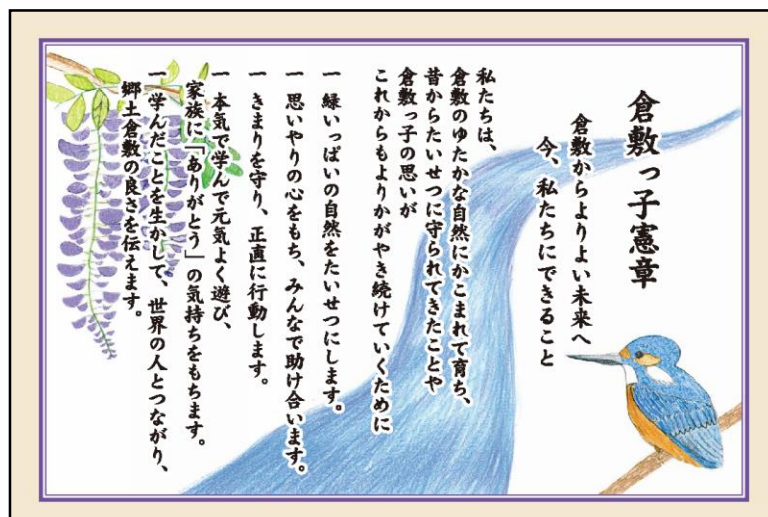 倉敷っ子憲章
倉敷からよりよい未来へ
今、私たちにできること
私たちは、
倉敷のゆたかな自然にかこまれて育ち、
昔からたいせつに守られてきたことや
倉敷っ子の思いが
これからもよりかがやき続けていくために
一 緑いっぱいの自然をたいせつにします。
一 思いやりの心をもち、みんなで助け合います。
一 きまりを守り、正直に行動します。
一 本気で学んで元気よく遊び、
家族に「ありがとう」の気持ちをもちます。
一 学んだことを生かして、世界の人とつながり、
郷土倉敷の良さを伝えます。